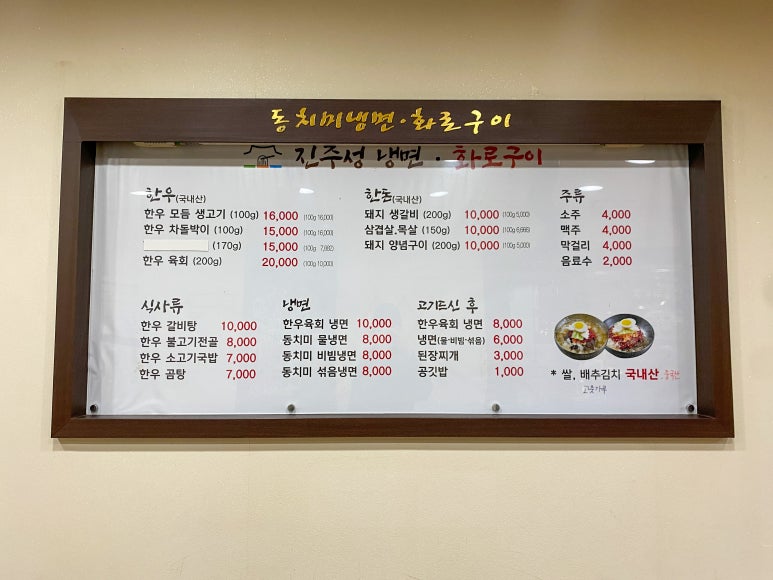 동치미냉면·화로구이
진주성 냉면 · 화로구이
한우(국내산)
한우 모듬 생고기 (100g) 16,000 (100g 16,000)
한우 차돌박이 (100g) 15,000 (100g 16,000)
(170g) 15,000 (100g 7,882)
한우 육회 (200g) 20,000 (100g 10,000)
한돈(국내산)
돼지 생갈비 (200g) 10,000 (100g 5,000)
삼겹살.목살 (150g) 10,000 (100g 6,666)
돼지 양념구이 (200g) 10,000 (100g 5,000)
주류
소주 4,000
맥주 4,000
막걸리 4,000
음료수 2,000
식사류
한우 갈비탕 10,000
한우 불고기전골 8,000
한우 소고기국밥 7,000
한우 곰탕 7,000
냉면
한우육회 냉면 10,000
동치미 물냉면 8,000
동치미 비빔냉면 8,000
동치미 섞음냉면 8,000
고기드신 후
한우육회 냉면 8,000
냉면(물·비빔·섞음) 6,000
된장찌개 3,000
공깃밥 1,000
* 쌀, 배추김치 국내산 중국산
고춧가루